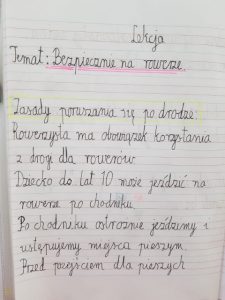 Lekcja
Temat: Bezpiecznie na rowerze.
Zasady poruszania się po drodze:
Rowerzysta ma obowiązek korzystania
z drogi dla rowerów
Dziecko do lat 10 może jeździć na
rowerze po chodniku
Po chodniku ostrożnie jeździmy i
ustępujemy miejsca pieszym.
Przed przejściem dla pieszych